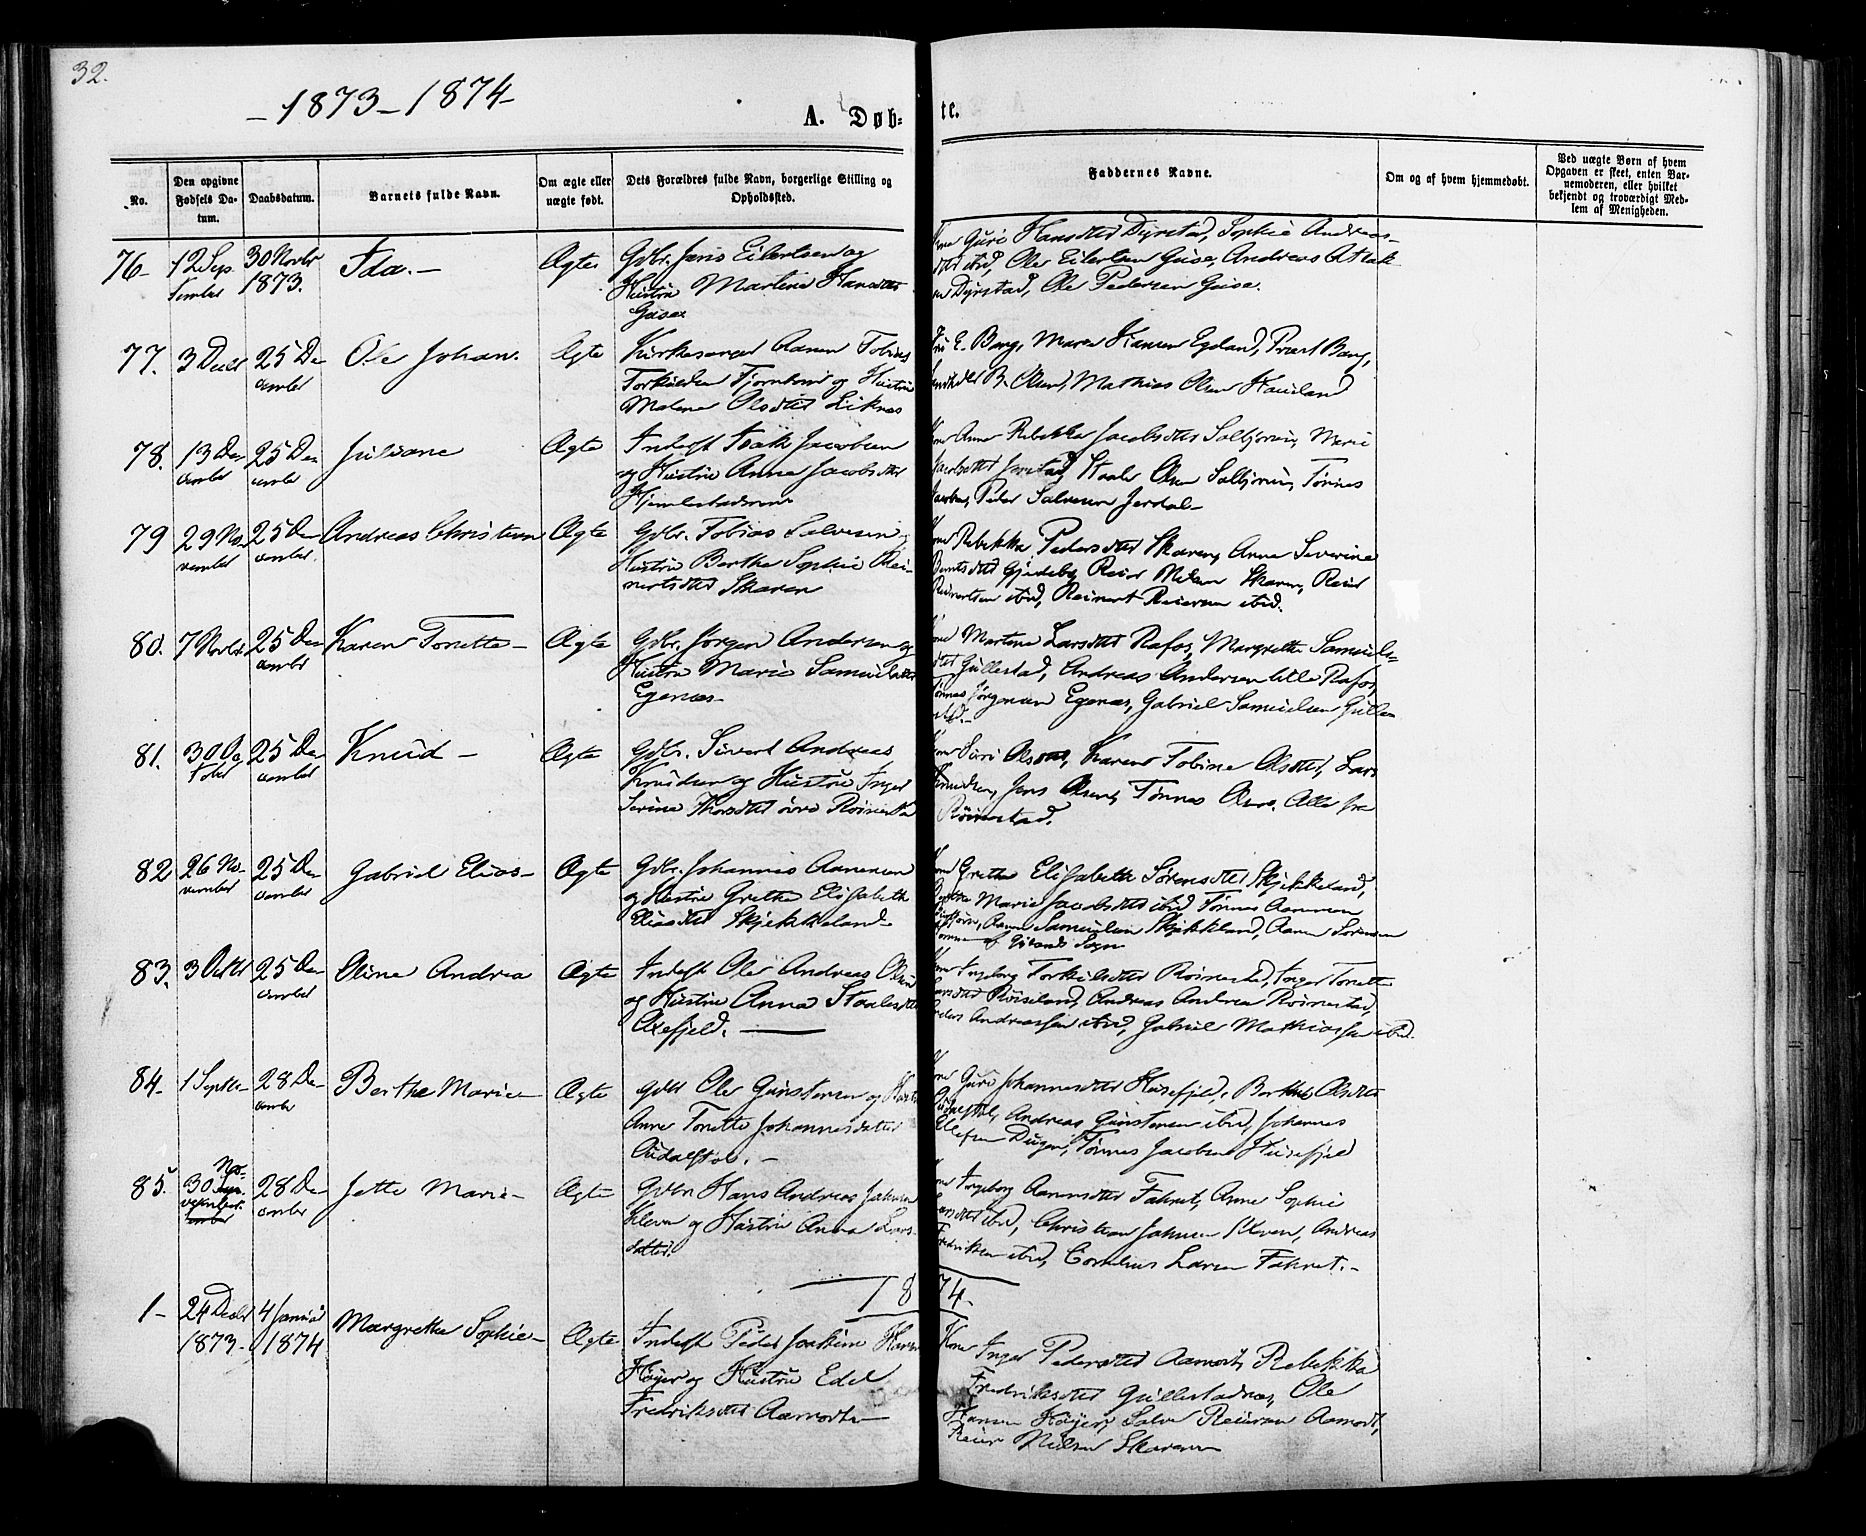 32.
- 1873 - 1874 -
A. Døb-
te.
No.
Den opgivne Fødsels Da-tum.
Daabsdatum.
Barnets fulde Navn.
Om ægte eller uægte født.
Dets Forældres fulde Navn, borgerlige Stilling og Opholdssted.
Faddernes Navne.
Om og af hvem hjemmedøbt.
Ved uægte Børn af hvem Opgaven er skeet, enten Bar-nemoderen, eller hvilket bekjendt og troværdigt Med-lem af Menigheden.
76- 12 Sep tember 30 Novbr 1873. Ida. - Ægte
Gdbr. Jens Eilertsen og
Hustru Martine Hansdtr
Guri Hansdtr Dyrstad, Sophie Andreas-
dtr ibid, Ole Eilertsen Andreas
Dyrstad, Ole Pedersen
77. 3 Decbr 25 De cember Ole Johan. Ægte
Kirkesanger Aanen Tobias
Torkildsen og Hustru
Malene Olsdtr Liknes
E. Bang, Maren Hansen Egeland, Præst Bang,
B. Olsen, Mathias Olsen Haueland
78. 13 De cember 25 De cember Juliane Ægte
Inderst Isak Jacobsen
og Hustru Anne Jacobsdtr
Anne Rebekka Jacobsdtr Marie
Jacobsdtr Staale Olsen Tønnes
Peder Salvesen Jerdal-
79 29 No vember 25 De cember. Andreas Christian Ægte
Gdbr. Tobias Salvesen og
Hustru Berthe Sophie Rei-
nertsdtr Skaren
Rebekka Pedersdtr Skaren, Anne Severine
Reier Nielsen Skaren, Reier
Reinertsen ibid, Reinert Reiersen ibid.
80. 7 Novbr. 25 De cember Karen Tonette- Ægte
Gdbr. Jørgen Andersen og
Hustru Marie Samuelsdtr
Egenæs-
Martine Larsdtr Rafos, Margrethe Samuels-
dtr Gullestad, Andreas Andersen lille Rafos,
Tønnes Jørgensen Egenæs, Gabriel Samuelsen Gulle-
stad.-
81. 30 Oc tober 25 De cember Knud - Ægte
Gdbr. Sivert Andreas
Knudsen og Hustru Inger
Serine
Siri Olsdtr, Karen Tobine Olsdtr, Lars
Knudsen, Jens Olsen, Tønnes Olsen. Alle fra
Røinestad.
82 26 No- vember 25 De cember Gabriel Elias- Ægte
Gdbr. Johannes Aanensen
og Hustru Grethe Elisabeth
Eliasdtr Skjekkeland-
Grethe Elisabeth Sørensdtr Skjekkeland,
Marie Jacobsdtr ibid Tønnes Aanensen
Aanen Samuelsen Skjekkeland, Aanen Sørensen
af Sogn
83. 3 Octbr 25 De cember Oline Andrea Ægte
Inderst Ole Andreas Olsen
og Hustru Anna Staalesdtr
Oxefjeld. -
Ingeborg Torkildsdtr Røinestad, Inger Tonette
Larsdtr Røiseland, Andreas Andersen Røinestad,
Andreassen ibid, Gabriel Mathiassen ibid
84- 1 Septbr- 28 De cember Berthe Marie- Ægte
Gdbr Ole Gunstensen og Hustru
Anne Tonette Johannesdatter
Guri Johannesdtr Husefjeld, Berthe Olsdtr
Andreas Gunstensen ibid, Johannes
Ellefsen Tønnes Jacobsen Husefjeld
85. 30 No- vember 28 De cember Jette Marie- Ægte
Gdbr Hans Andreas Jahnsen
Kleven og Hustru Anna Lars-
datter.
Ingeborg Aanensdtr Fakret, Anne Sophie
Larsdtr ibid, Christian Jahnsen Kleven, Andreas
Fredriksen ibid, Cornelius Larsen Fakret.-
1874.
1- 24 Decbr 1873- 4 Januar 1874 Margrethe Sophie- Ægte
Inderst Peder Joakim Hansen
Høyer og Hustru Edel
Fredriksdtr Aamodt-
Kone Inger Pedersdtr Aamodt, Rebekka
Fredriksdtr Gullestadnæs, Ole
Hansen Høyer, Salve Reiersen Aamodt,
Reier Nielsen Skaren